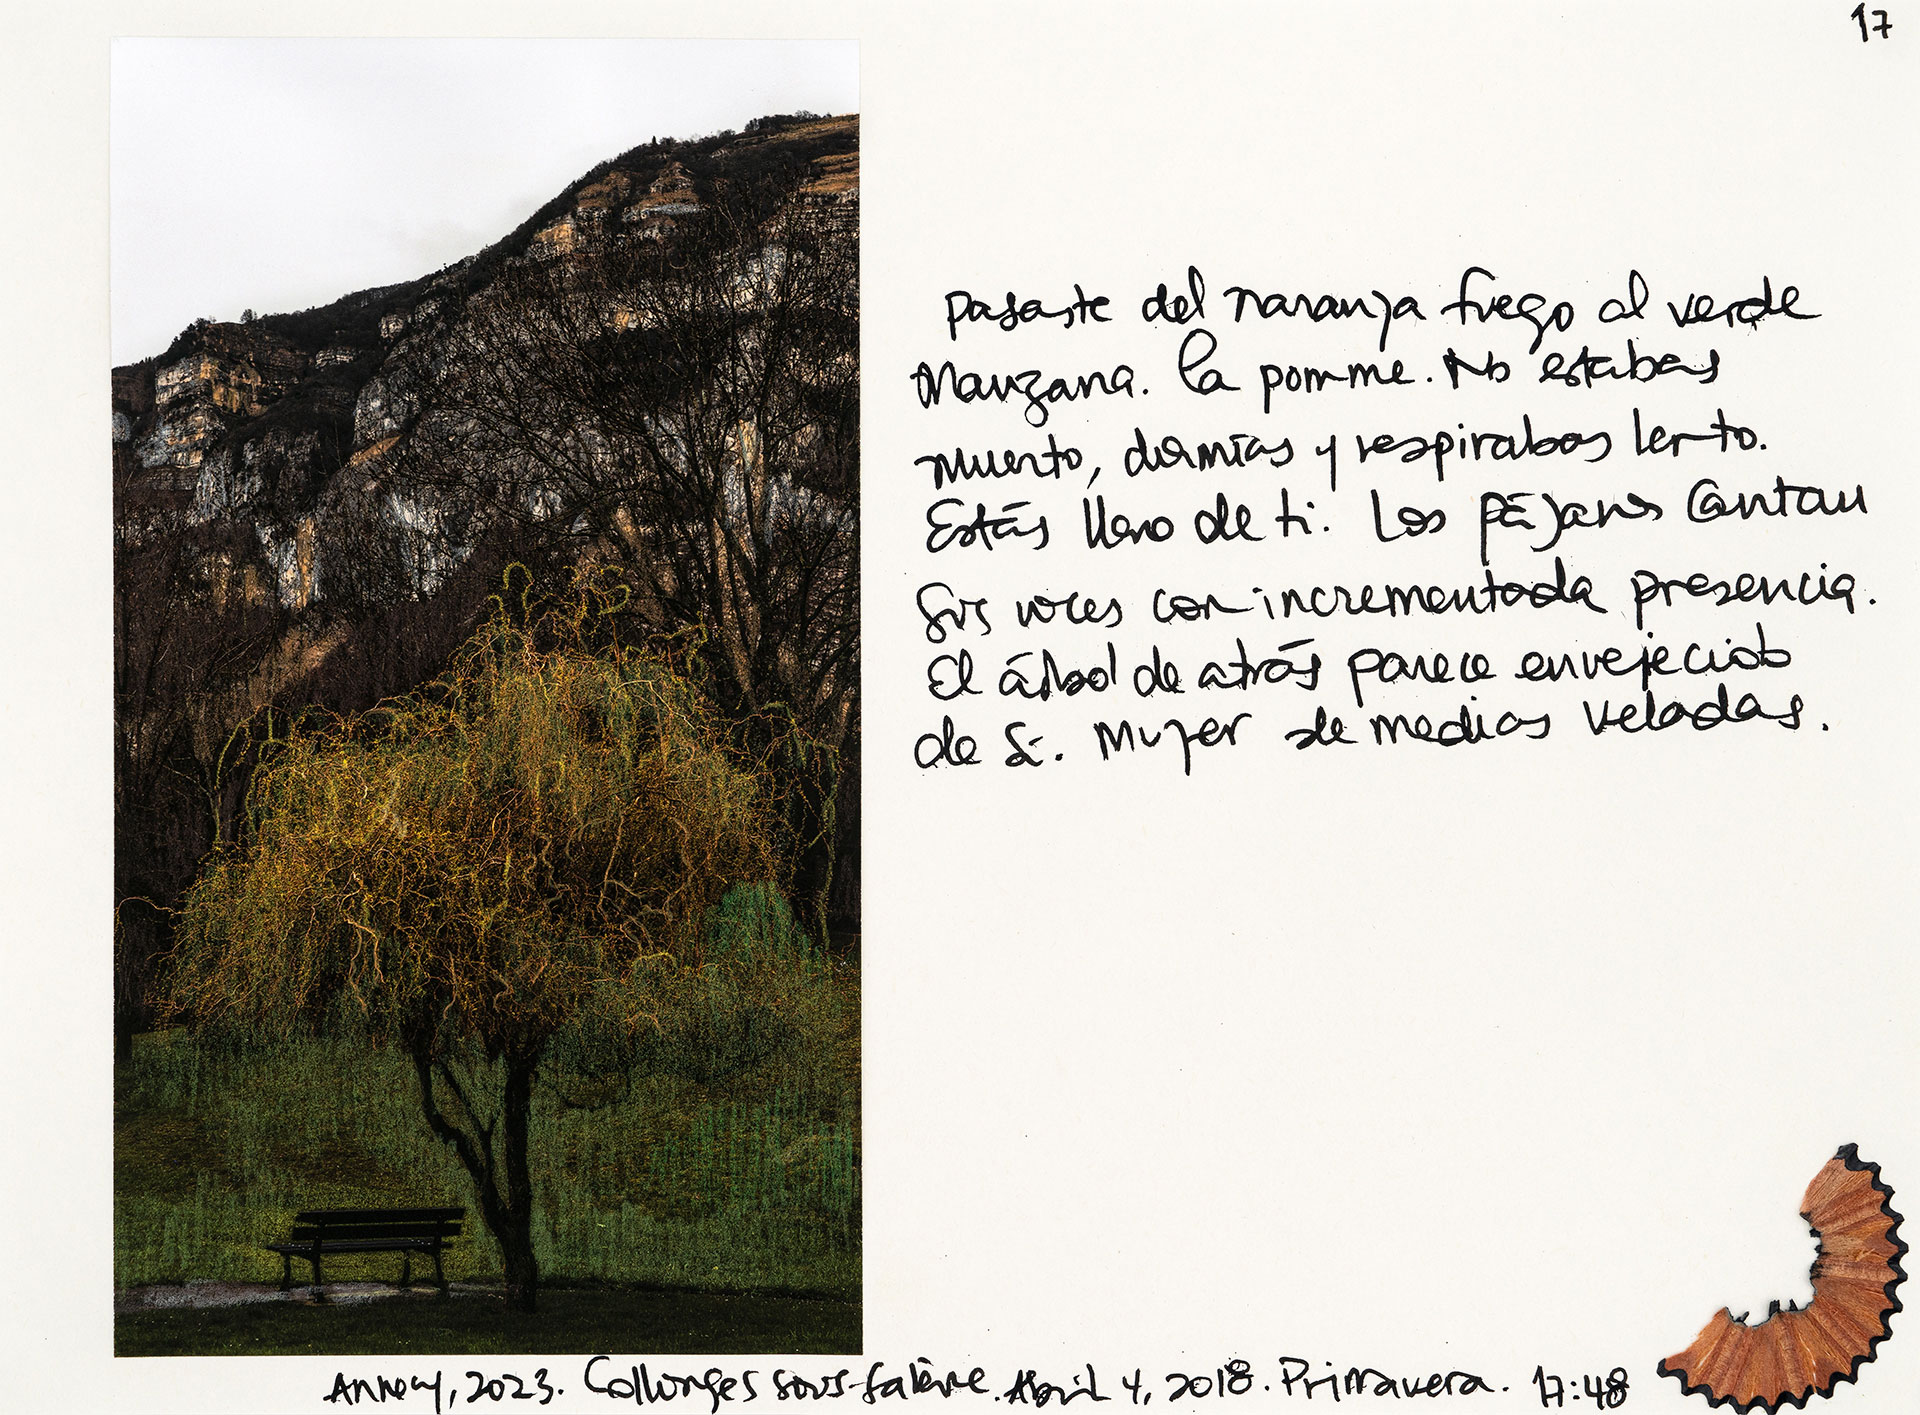 17
Pasaste del naranja fuego al verde
Manzana. La pomme. No estabas
muerto, dormías y respirabas lento.
Estás lleno de ti. Los pájaros Cantan
sus voces con incrementada presencia.
El árbol de atrás parece envejecido
de sí. Mujer de medias veladas.
Annecy, 2023. Collonges sous-Salève. Abril 4, 2018. Primavera. 17:48